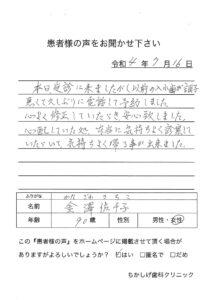 患者様の声をお聞かせ下さい
令和4年7月16日
本日受診に来ましたが以前の入れ歯が調子
悪くて久しぶりに電話して予約しました。
心よく修正していただき安心致しました。
心配していた処、本当に気持ちよく診察して
いただいて、気持ちよく帰る事が出来ました。
ふりがな かなざわ さちこ
名前 金澤佐千子
年齢 90歳 性別 男性・女性
この『患者様の声』をホームページに掲載させて頂く場合が
ありますがよろしいでしょうか? ☑はい □匿名で □だめ
ちかしげ歯科クリニック